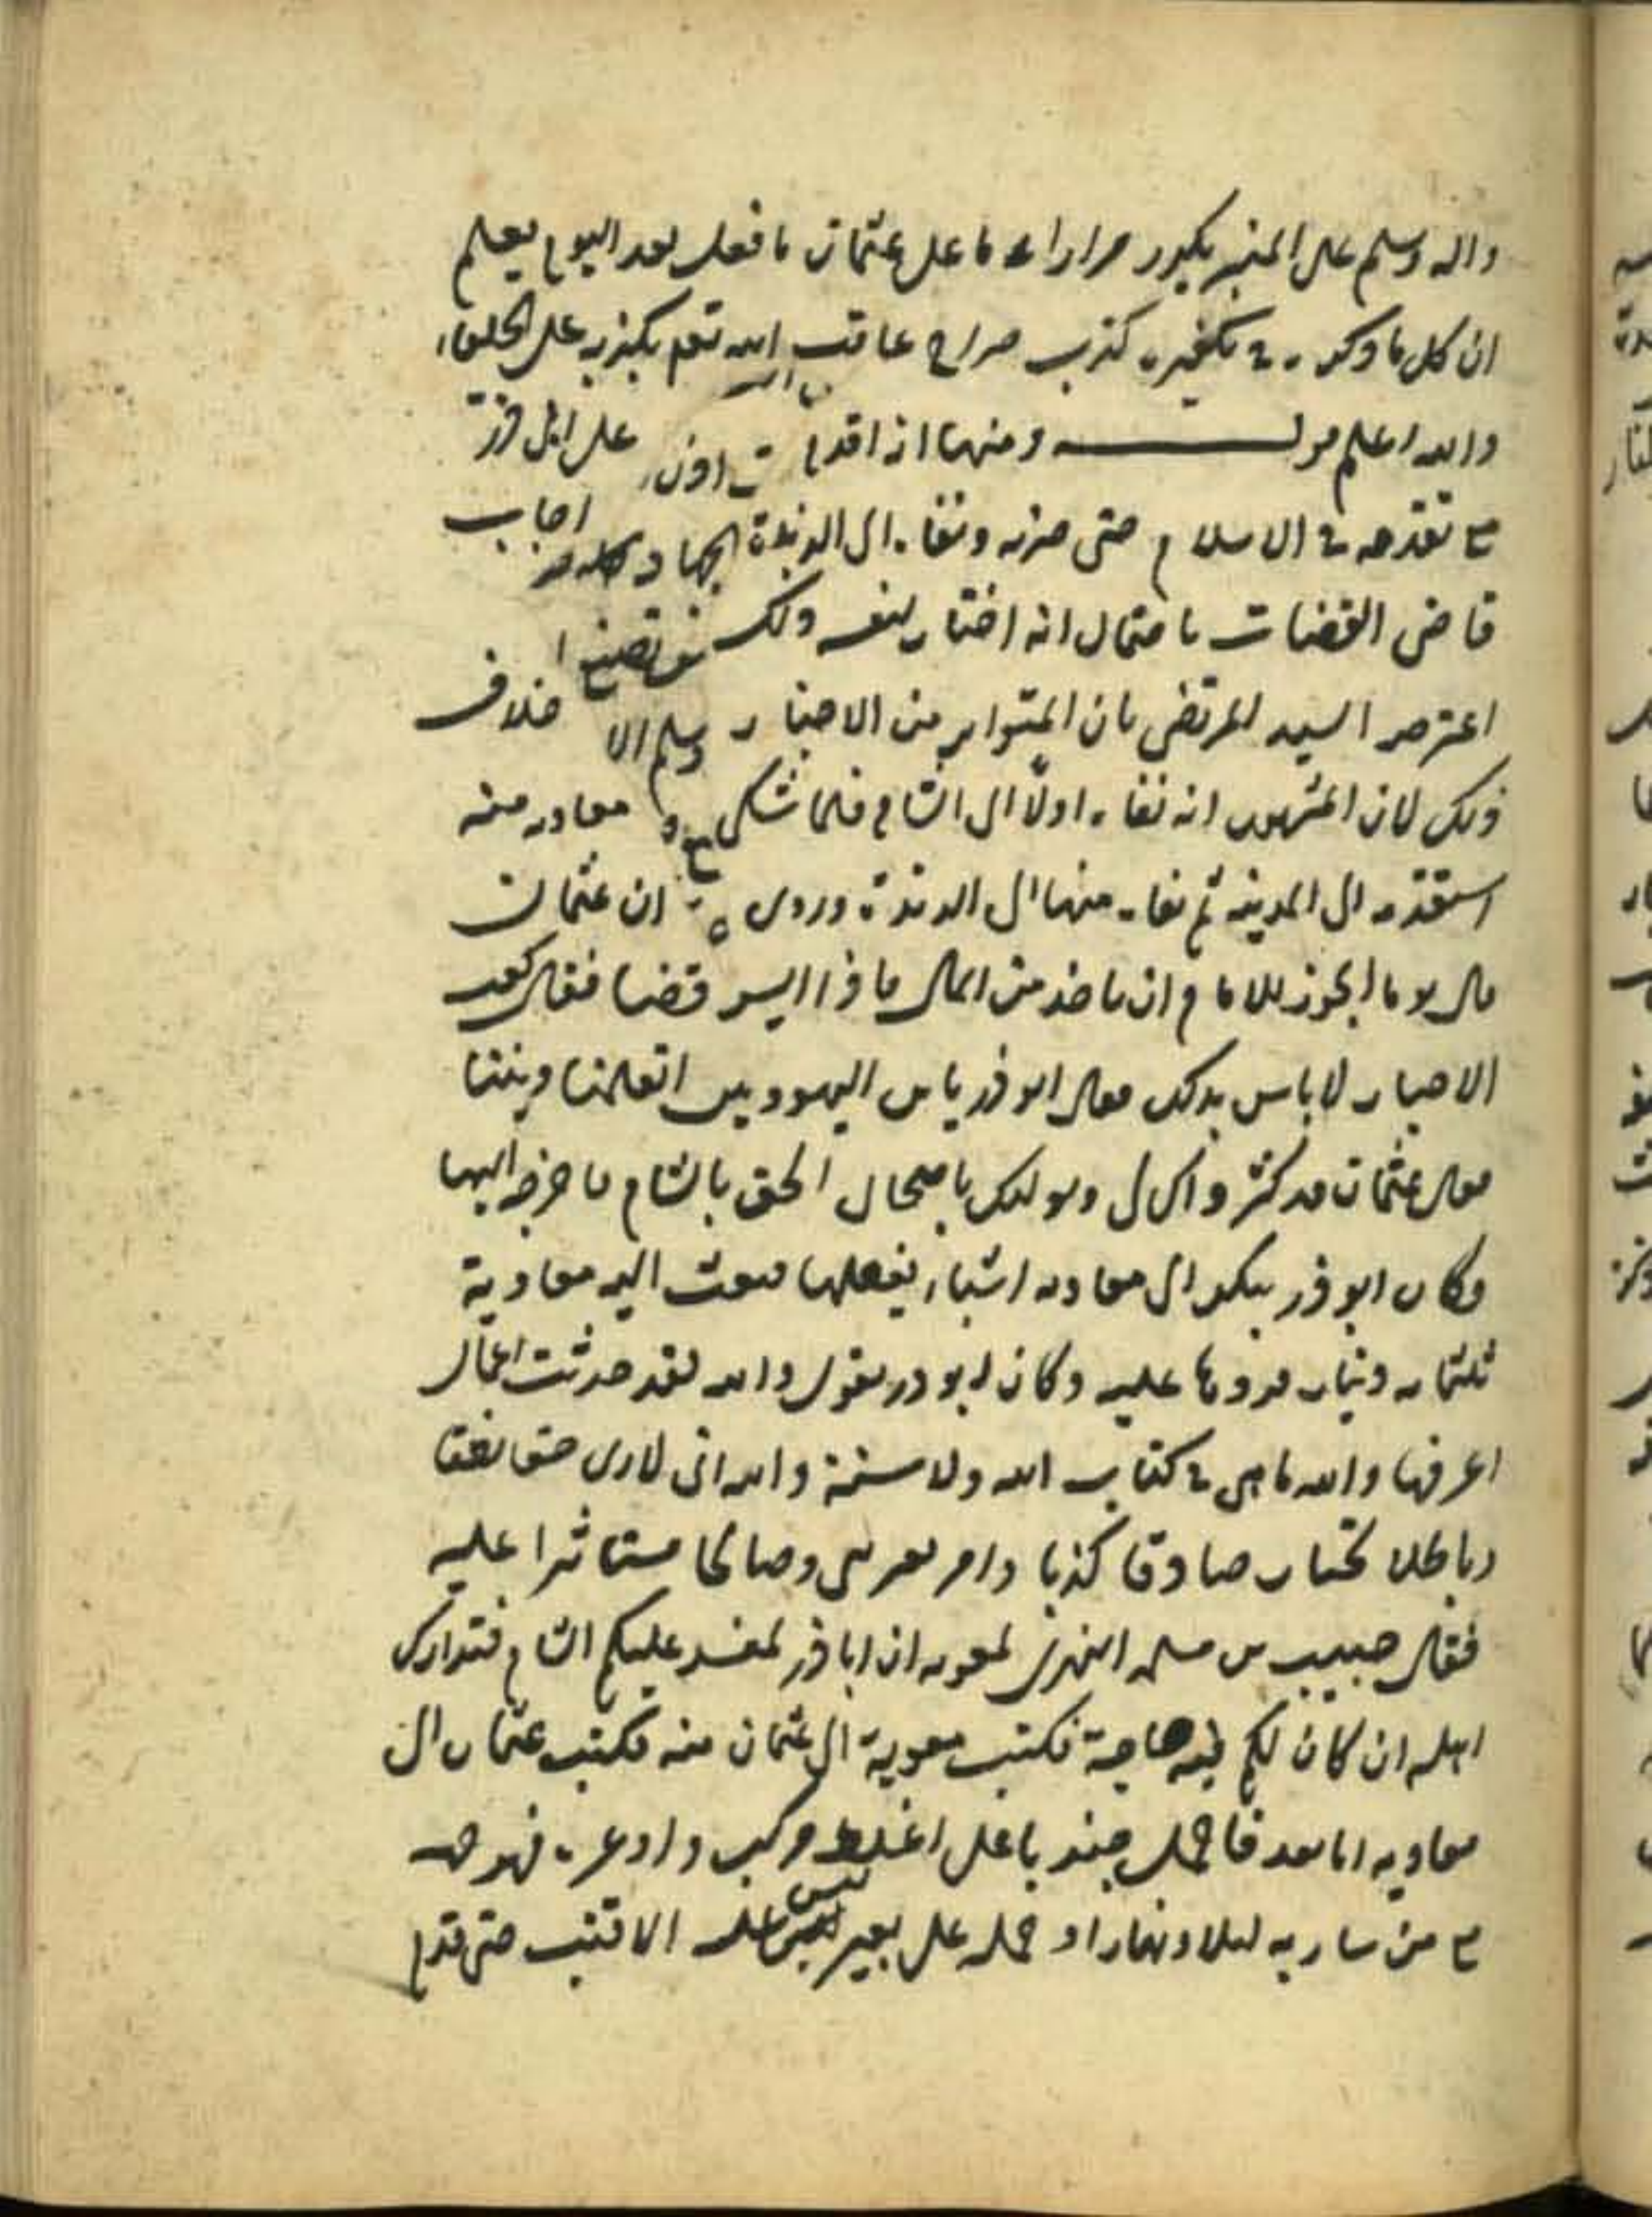 واله وسلم على المنبر يكرر مرارا ما على عثمان ما فعل بعد اليوم يعلم
ان كل ما ذكره في تكفيره كذب صراح عاقب الله تعم بكذبه على الخلفاء
والله اعلم قوله ومنها انه اقدم على ابى ذر
مع تقدمه في الاسلام حتى ضربه ونفاه الى الربذة اجاب
قاضى القضات باحتمال انه اختار لنفسه ذلك
اعترض السيد المرتضى بان المتواتر من الاخبار خلاف
ذلك لان المشهور انه نفاه اولا الى الشام فلما شكى معاويه منه
استقدمه الى المدينه ثم نفاه منها الى الربذة وروى ان عثمان
قال يوما ايجوز للامام ان ياخذ من المال فاذا ايسر قضا فقال كعب
الاحبار لا باس بذلك فقال ابو ذر يابن اليهوديين اتعلمنا ديننا
فقال عثمان قد كثر اذاك لى وتولعك باصحابى الحق بالشام فاخرجه اليها
وكان ابو ذر ينكر الى معاويه اشياء يفعلها فبعث اليه معاوية
ثلثمايه دينار فردها عليه وكان ابو ذر يقول والله لقد حدثت اعمال
اعرفها والله ما هى في كتاب الله ولا سنة والله انى لارى حقا يطفا
وباطلا يحيا وصادقا مكذبا وصالحا مستاثرا عليه
فقال حبيب بن مسلمه الفهرى لمعويه ان ابا ذر لمفسد عليكم الشام فتدارك
اهله ان كان لكم فيه حاجة فكتب معوية الى عثمان فيه فكتب عثمان الى
معاويه اما بعد فاحمل جندبا على اغلظ مركب واوعره فوجهه
مع من سار به ليلا ونهارا وحمله على بعير ليس عليه الا قتب حتى قدم